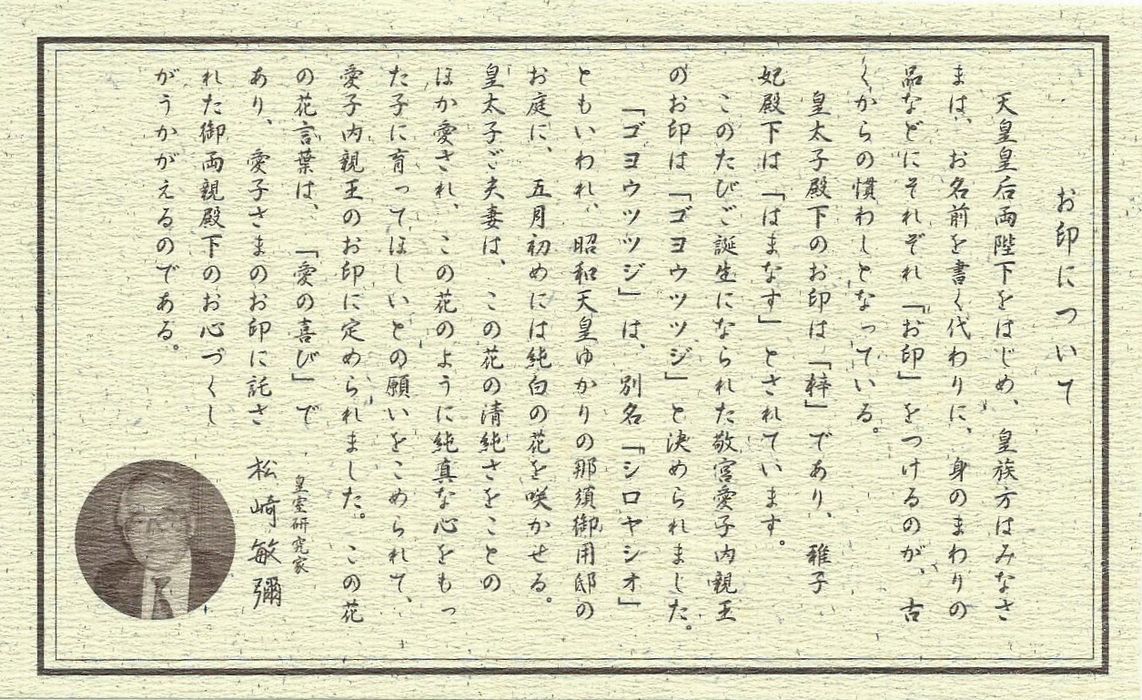 お印について
天皇皇后両陛下をはじめ、皇族方はみなさ
まは、お名前を書く代わりに、身のまわりの
品などにそれぞれ「お印」をつけるのが、古
くからの慣わしとなっている。
皇太子殿下のお印は「梓」であり、雅子
妃殿下は「はまなす」とされています。
このたびご誕生になられた敬宮愛子内親王
のお印は「ゴヨウツツジ」と決められました。
「ゴヨウツツジ」は、別名「シロヤシオ」
ともいわれ、昭和天皇ゆかりの那須御用邸の
お庭に、五月初めには純白の花を咲かせる。
皇太子ご夫妻は、この花の清純さをことの
ほか愛され、この花のように純真な心をもっ
た子に育ってほしいとの願いをこめられて、
愛子内親王のお印に定められました。この花
の花言葉は、「愛の喜び」で
あり、愛子さまのお印に託さ
れた御両親殿下のお心づくし
がうかがえるのである。
皇室研究家
松崎敏彌